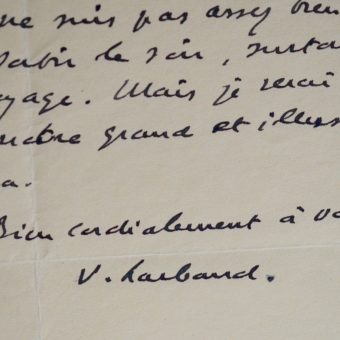 ne suis pas assez bien
sortir le soir, surto
yage. Mais je serai
notre grand et illus
a.
Bien cordialement à vo
V. Larbaud.